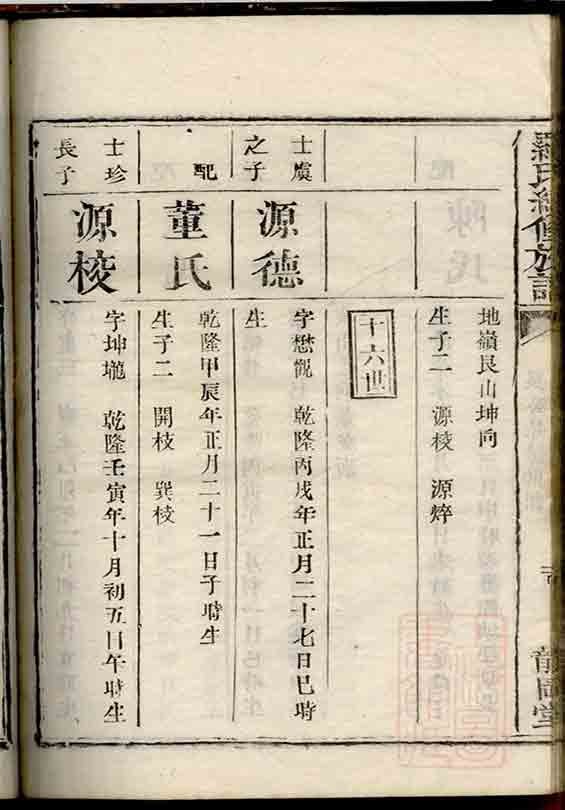 羅氏續修族譜
地嶺艮山坤向
生子二 源棱 源焠
十六世
士虞之子
源德
字懋觀 乾隆丙戌年正月二十七日巳時
生
配
董氏
乾隆甲辰年正月二十一日子時生
生子二 開枝 巽棱
士珍長子
源校
字坤壠 乾隆壬寅年十月初五日午時生